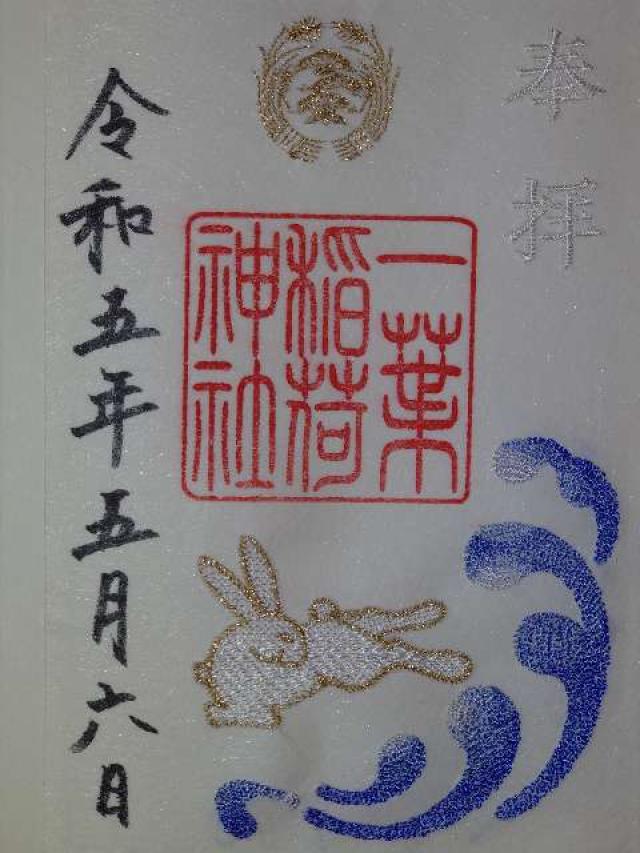 奉拝
一葉
稲荷
神社
令和五年五月六日